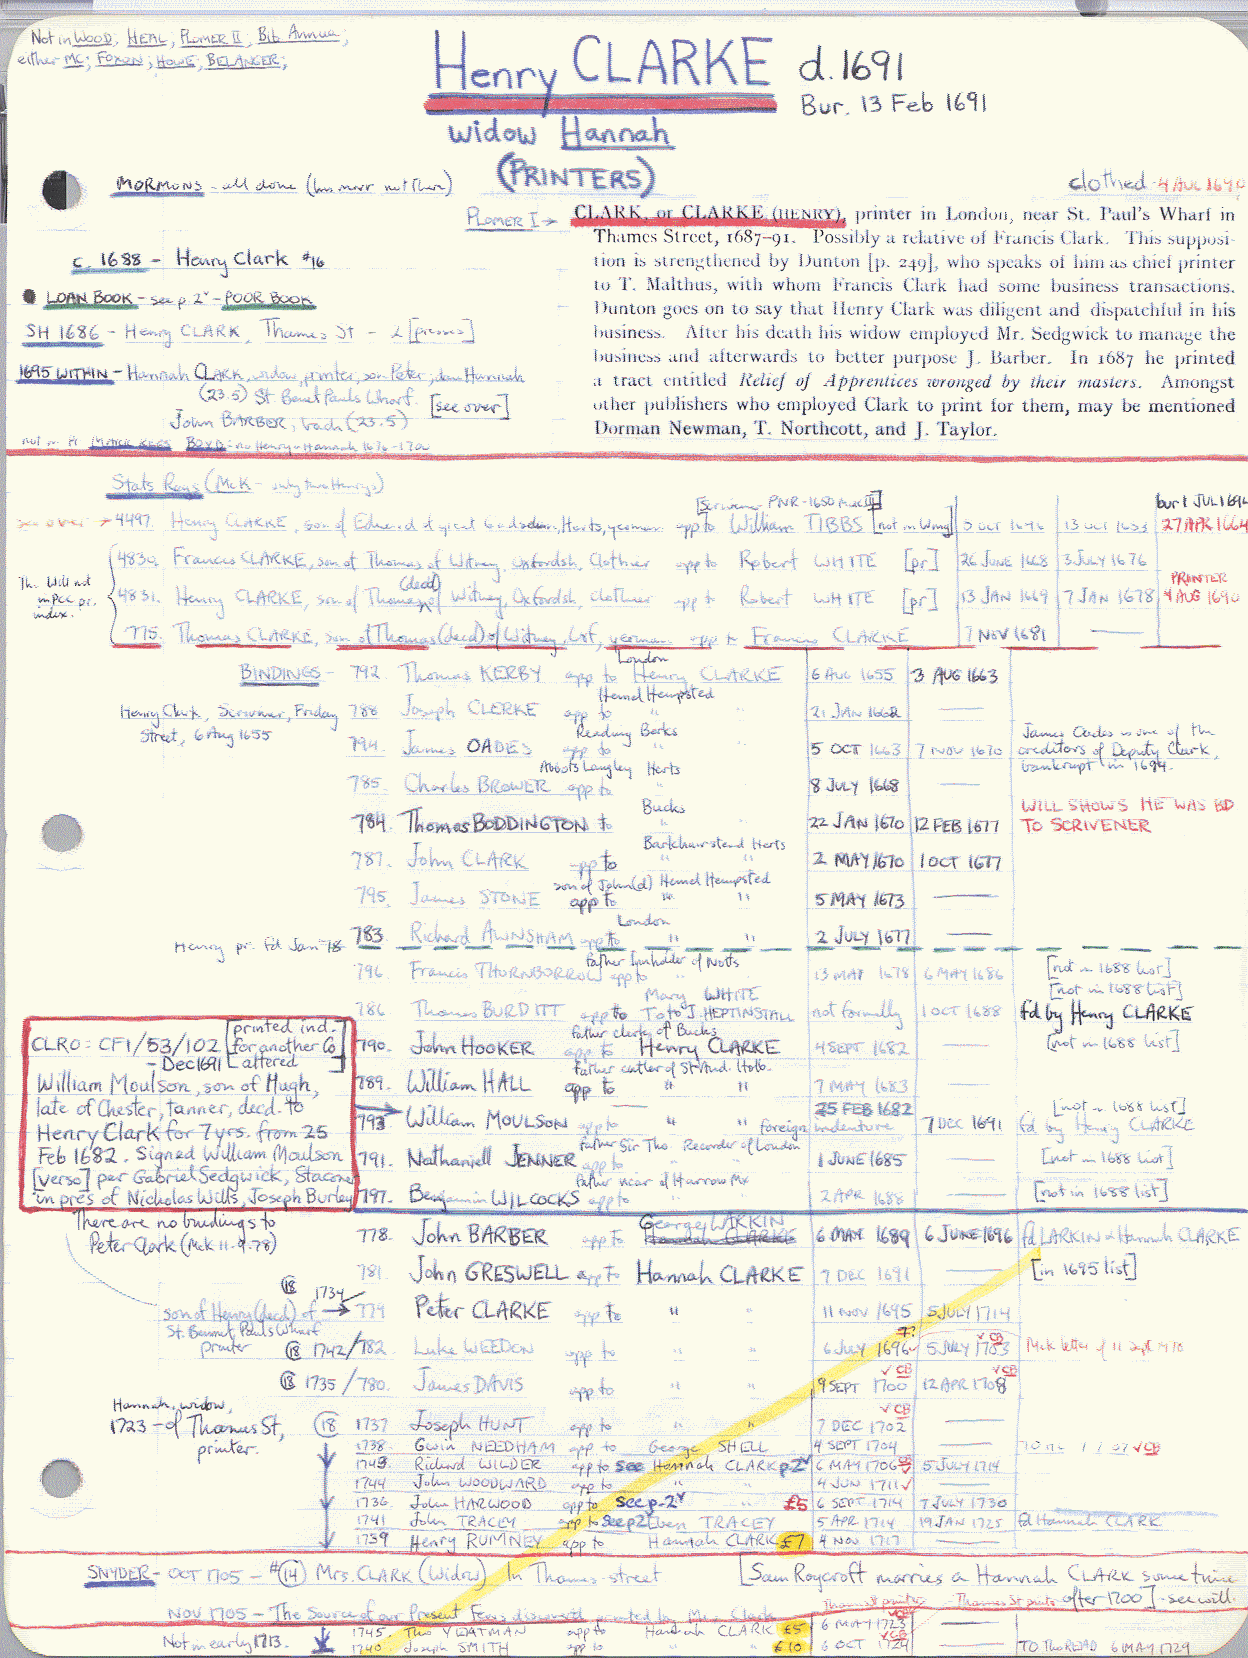 Not in WOOD; HEAL; PLOMER II; Bib Annua;
either MC; FOXON; HOWE; BELANGER;
Henry CLARKE d. 1691
Bur. 13 Feb 1691
widow Hannah
(PRINTERS)
MORMONS - all done
clothed - 4 AUG 1690
PLOMER I → CLARK, or CLARKE (HENRY), printer in London, near St. Paul's Wharf in
Thames Street, 1687–91. Possibly a relative of Francis Clark. This supposi-
tion is strengthened by Dunton [p. 249], who speaks of him as chief printer
to T. Malthus, with whom Francis Clark had some business transactions.
Dunton goes on to say that Henry Clark was diligent and dispatchful in his
business. After his death his widow employed Mr. Sedgwick to manage the
business and afterwards to better purpose J. Barber. In 1687 he printed
a tract entitled Relief of Apprentices wronged by their masters. Amongst
other publishers who employed Clark to print for them, may be mentioned
Dorman Newman, T. Northcott, and J. Taylor.
c. 1688 - Henry Clark #16
LOAN BOOK - see p. 2ᵛ - POOR BOOK
SH 1686 - Henry CLARK, Thames St - 2 [presses]
1695 WITHIN - Hannah CLARK, widow, printer, son Peter, dau Hannah
(23.5) St Benet Pauls Wharf [see over]
John BARBER, bach (23.5)
BOYD: no Henry = Hannah 1676-1700
Stats Regs (McK - only two Henrys)
bur 1 JUL 1694
see over → 4497. Henry CLARKE, son of Edward of Herts, yeoman app to William TIBBS 5 OCT 1646 13 OCT 1653 27 APR 1664
4830. Francis CLARKE, son of Thomas of Witney, Oxfordsh, Clothier app to Robert WHITE [pr] 26 JUNE 1668 3 JULY 1676
Th. Will not in PCC pr. index.
4831. Henry CLARKE, son of Thomas (decd) of Witney, Oxfordsh, clothier app to Robert WHITE [pr] 13 JAN 1669 7 JAN 1678 PRINTER 4 AUG 1690
775. Thomas CLARKE, son of Thomas (decd) of Witney, Oxf, yeoman app to Francis CLARKE 7 NOV 1681
BINDINGS - 792. Thomas KERBY London app to Henry CLARKE 6 AUG 1655 3 AUG 1663
Henry Clark, Scrivener, Friday
Street, 6 Aug 1655
788 Joseph CLERKE Hemel Hempsted app to " " 21 JAN 1662
794. James OADES Reading Berks app to " " 5 OCT 1663 7 NOV 1670 James Oades is one of the
creditors of Deputy Clark,
bankrupt in 1694.
785. Charles BROWER Abbots Langley Herts app to " 8 JULY 1668
784. Thomas BODDINGTON Bucks to " 22 JAN 1670 12 FEB 1677 WILL SHOWS HE WAS BD
TO SCRIVENER
787. John CLARK Herts app to " " 2 MAY 1670 1 OCT 1677
795. James STONE son of John (d) Hemel Hempsted app to " " 5 MAY 1673
783. Richard AWNSHAM London app to " " 2 JULY 1677
Henry pr. fd Jan 78
796. Francis THORNBORROW Father Innholder of Notts app to " 13 MAR 1678 6 MAY 1686 [not in 1688 list]
786 Thomas BURDITT app to Mary WHITE To to J. HEPTINSTALL not formally 1 OCT 1688 [not in 1688 list] fd by Henry CLARKE
790. John HOOKER Father clerk of Bucks app to Henry CLARKE 4 SEPT 1682 [not in 1688 list]
789. William HALL Father cutler of St And. Holb. app to " " 7 MAY 1683
793 William MOULSON app to " " foreign indenture 25 FEB 1682 7 DEC 1691 [not in 1688 list] fd by Henry CLARKE
791. Nathaniell JENNER Father Sir Tho. Recorder of London app to 1 JUNE 1685 [not in 1688 list]
797. Benjamin WILCOCKS Father near of Harrow Mx app to " 2 APR 1688 [not in 1688 list]
CLRO: CF1/53/102 [printed ind. for another Co altered]
- Dec 1691
William Moulson, son of Hugh,
late of Chester, tanner, decd. to
Henry Clark for 7 yrs. from 25
Feb 1682. Signed William Moulson
[verso] per Gabriel Sedgwick, Stacone
in pres of Nicholas Wills, Joseph Burley
There are no bindings to
Peter Clark (McK 11-9-78)
778. John BARBER app to George LARKIN Hannah CLARKE 6 MAY 1689 6 JUNE 1696 fd LARKIN & Hannah CLARKE
781. John GRESWELL app to Hannah CLARKE 7 DEC 1691 [in 1695 list]
18 1734
son of Henry (decd) of
St. Bennet, Pauls Wharf
printer
→ 779 Peter CLARKE app to " " 11 NOV 1695 5 JULY 1714
18 1742/782. Luke WEEDON app to " " 6 JULY 1696 7? 5 JULY 1703 ✓CB McK letter of 11 Sept
18 1735/780. James DAVIS app to " " 9 SEPT 1700 ✓CB 12 APR 1708 ✓CB
Hannah, widow,
1723 - of Thames St,
printer.
18 1737 Joseph HUNT app to " " 7 DEC 1702 ✓CB
1738. Gwin NEEDHAM app to George SHELL 4 SEPT 1704 ✓CB
1743. Richard WILDER app to see Hannah CLARK p2ᵛ 6 MAY 1706 5 JULY 1714
1744 John WOODWARD app to " " 4 JUN 1711✓
1736. John HARWOOD app to see p-2ᵛ " £5 6 SEPT 1714 7 JULY 1730
1741 John TRACEY app to see p 2ᵛ Eben TRACEY 5 APR 1714 19 JAN 1725 fd Hannah CLARK
1739 Henry RUMNEY app to Hannah CLARK £7 4 NOV 1717
SNYDER - OCT 1705 - #14 Mrs. CLARK (Widow) In Thames-street [Sam Roycroft marries a Hannah CLARK some time
after 1700] - see will.
NOV 1705 - The Source of our Present Fears discover'd printed by Mrs Clark
Not in early 1713.
1745. Tho YEATMAN app to Hannah CLARK £5 6 MAY 1723 ✓CB
1740 Joseph SMITH app to " " £10 6 OCT 1724 ✓CB TO Tho READ 6 MAY 1729